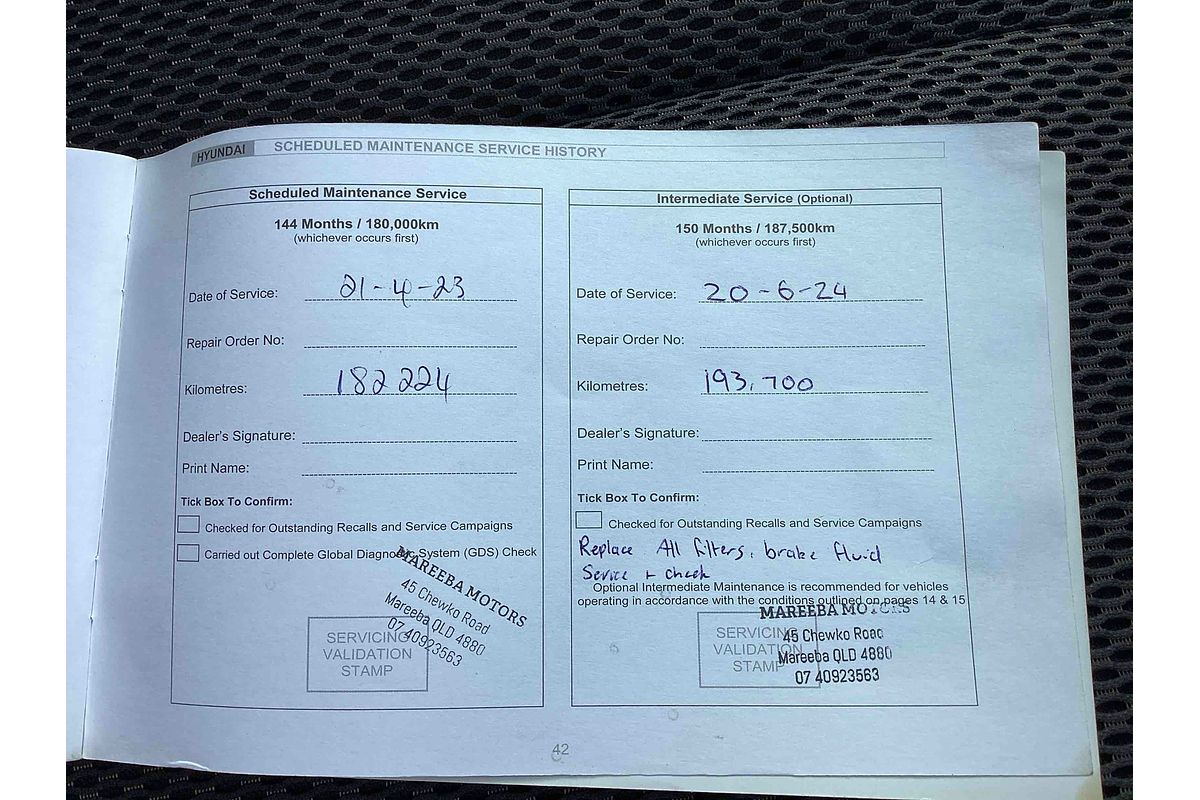 HYUNDAI SCHEDULED MAINTENANCE SERVICE HISTORY
Scheduled Maintenance Service
144 Months / 180,000km
(whichever occurs first)
Date of Service: 21-4-23
Repair Order No:
Kilometres: 182 224
Dealer's Signature:
Print Name:
Tick Box To Confirm:
Checked for Outstanding Recalls and Service Campaigns
Carried out Complete Global Diagnostic System (GDS) Check
MAREEBA MOTORS
45 Chewko Road
Mareeba QLD 4880
07 40923563
SERVICING
VALIDATION
STAMP
Intermediate Service (Optional)
150 Months / 187,500km
(whichever occurs first)
Date of Service: 20-6-24
Repair Order No:
Kilometres: 193,700
Dealer's Signature:
Print Name:
Tick Box To Confirm:
Checked for Outstanding Recalls and Service Campaigns
Replace All filters, brake fluid
Service + check
Optional Intermediate Maintenance is recommended for vehicles
operating in accordance with the conditions outlined on pages 14 & 15
MAREEBA MOTORS
45 Chewko Road
Mareeba QLD 4880
07 40923563
SERVICING
VALIDATION
STAMP
42